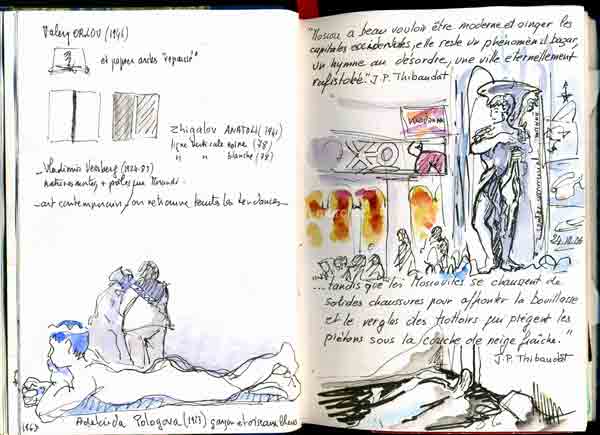 Valery ORLOV (1946)
et papier
Zhigalov ANATOLI (1941)
ligne verticale noire (78)
" " blanche (79)
Vladimir (1924-85)
natures mortes, + pâles que Morandi
art contemporain, on retrouve toutes les tendances
Adelaida Pologova (1923) garçon et oiseaux bleus
"Moscou a beau vouloir être moderne et singer les
capitales occidentales, elle reste un phénoménal bazar,
un hymne au désordre, une ville éternellement
rafistolée". J.P. Thibaudat
24.10.06
... tandis que les Moscovites se chaussent de
solides chaussures pour affronter la bouillasse
et le verglas des trottoirs qui piègent les
piétons sous la couche de neige fraîche."
J.P. Thibaudat